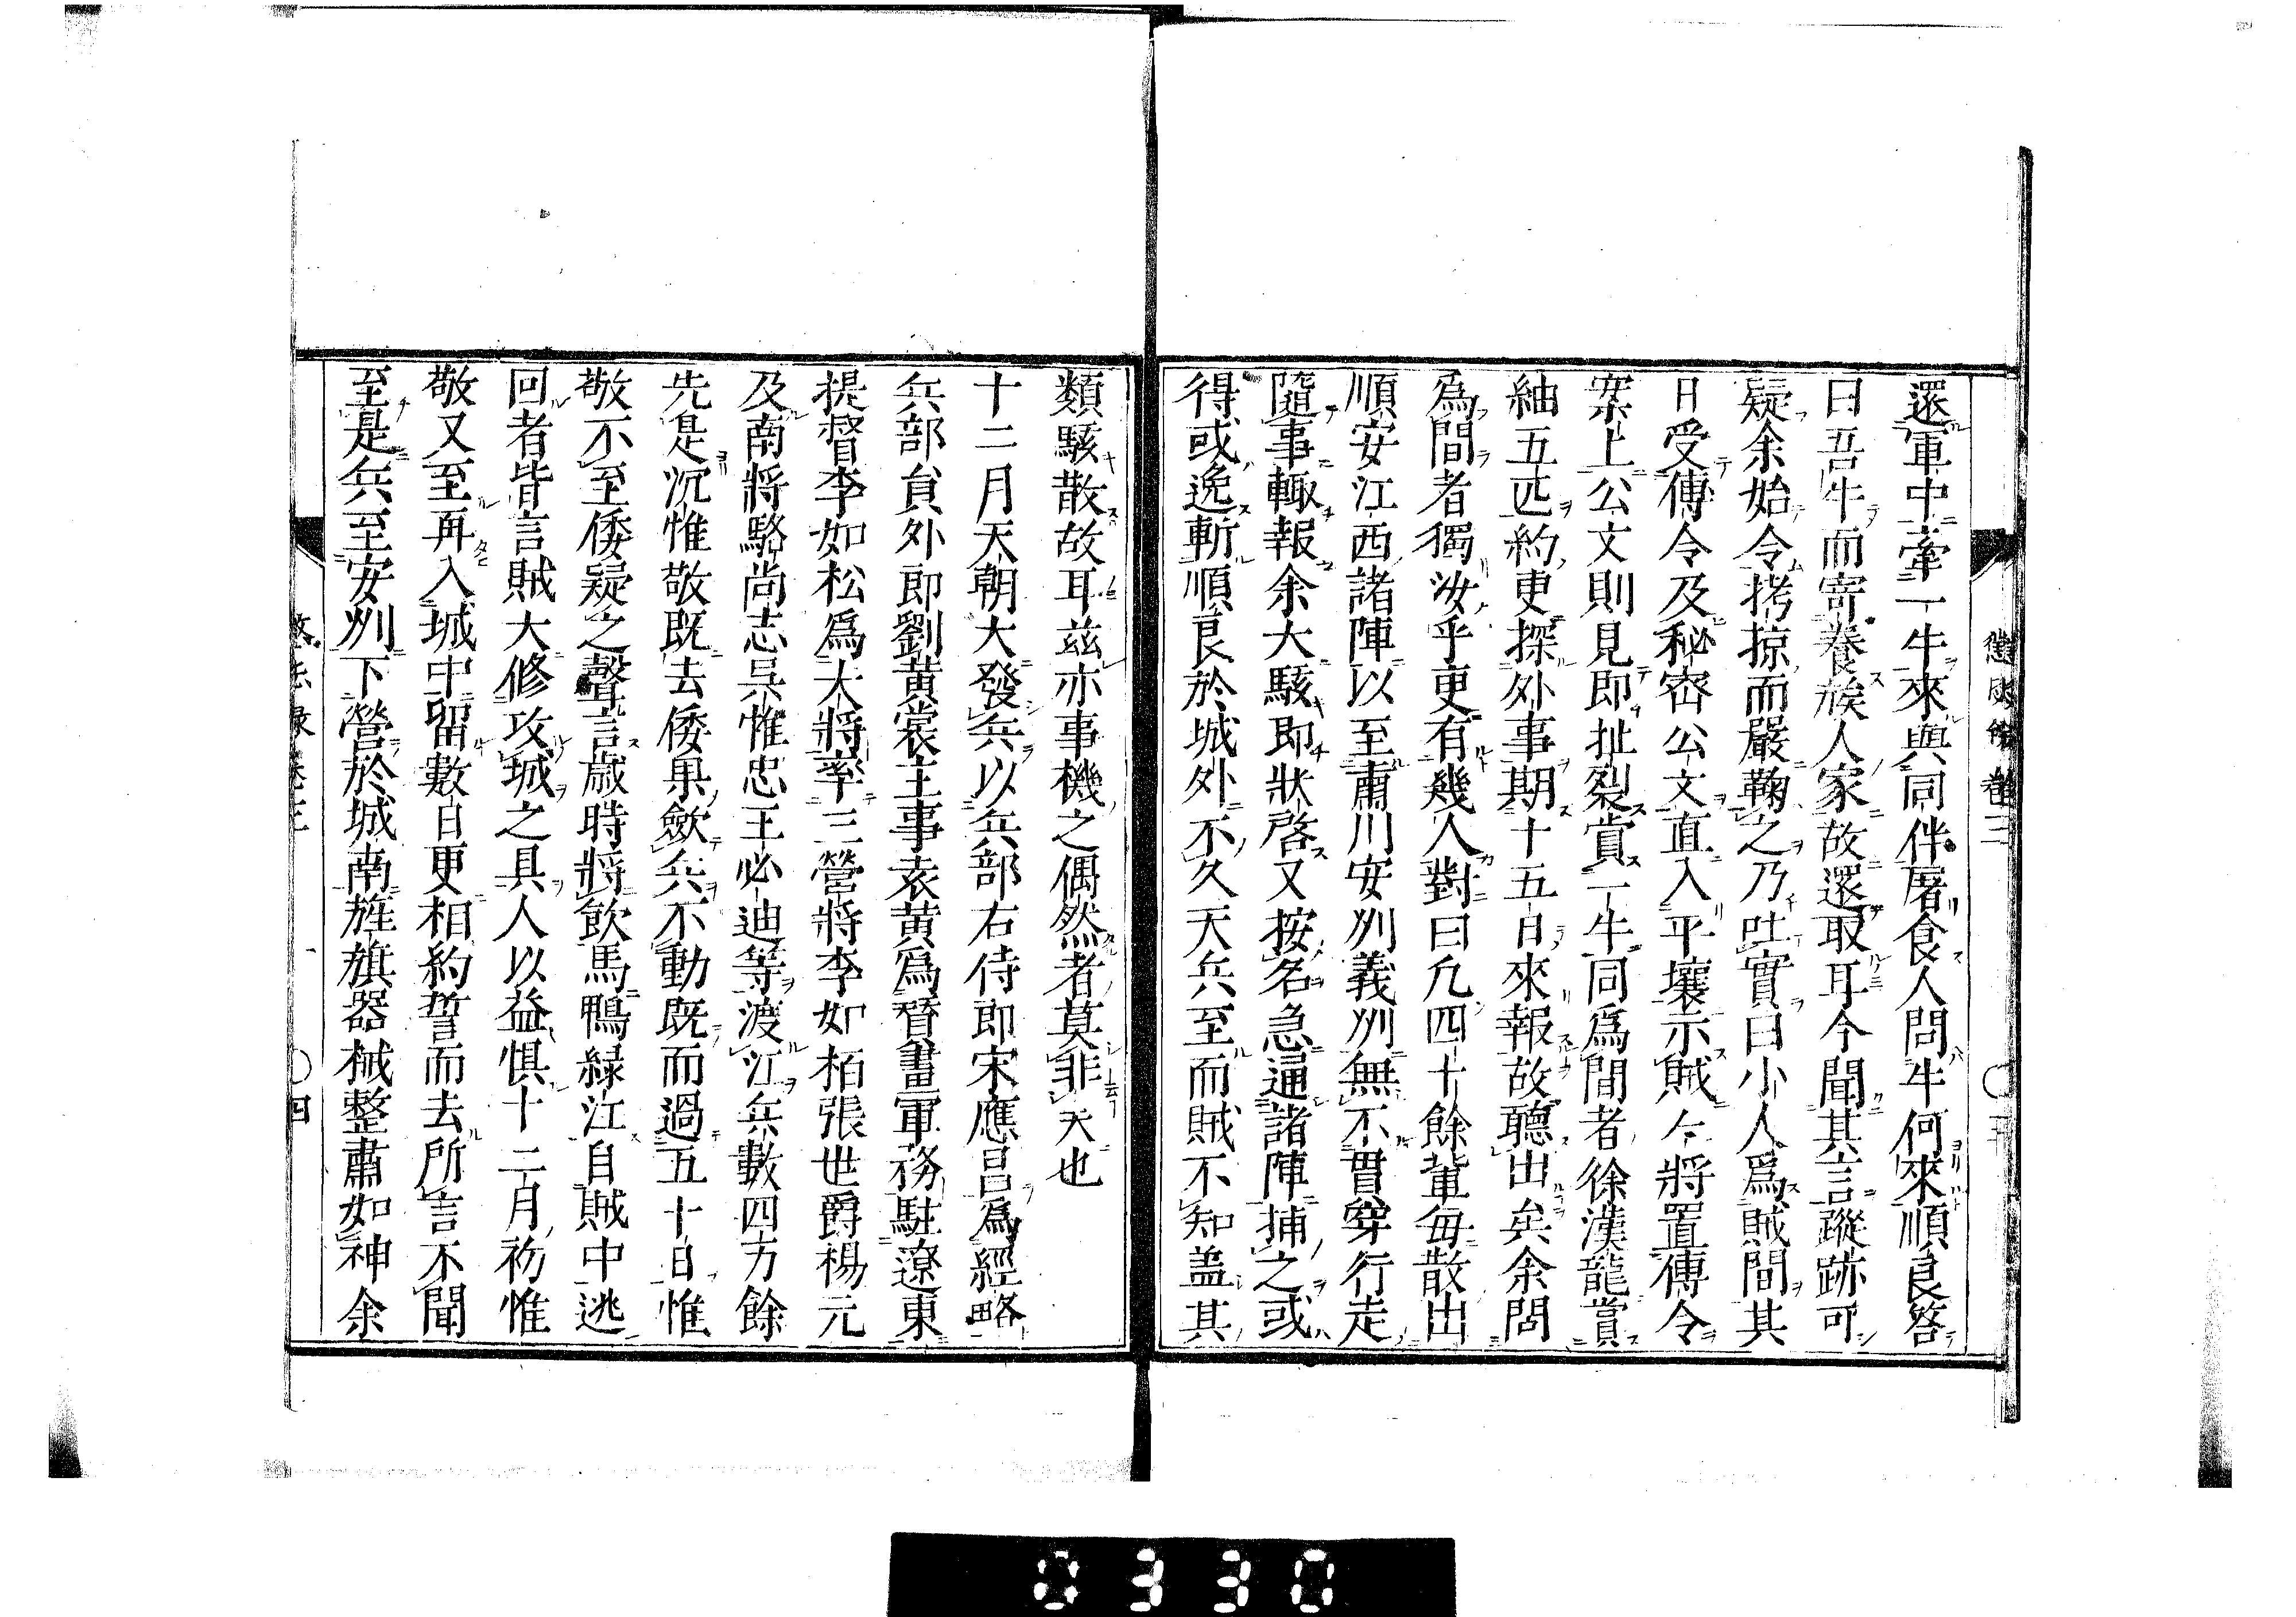 還軍中牽一牛來與同伴屠食人問牛何來順良答
曰吾牛而寄養族人家故還取耳今聞其言蹤跡可
疑余始令拷掠而嚴鞠之乃吐實曰小人爲賊間其
日受傳令及秘密公文直入平壤示賊々將置傳令
案上公文則見即扯裂賞一牛同爲間者徐漢龍賞
紬五匹約更探外事期十五日來報故聽出矣余問
爲間者獨汝乎更有幾人對曰凢四十餘輩每散出
順安江西諸陣以至肅川安州義州無不貫穿行走
隨事輙報余大駭即狀啓又按名急通諸陣捕之或
得或逸斬順良於城外不久天兵至而賊不知盖其
類駭散故耳茲亦事機之偶然者莫非天也
十二月天朝大發兵以兵部右侍郎宋應昌爲經略
兵部員外郎劉黄裳主事袁黄爲賛畫軍務駐遼東
提督李如松爲大將率三營將李如栢張世爵楊元
及南將駱尚志吳惟忠王必迪等渡江兵數四万餘
先是沉惟敬既去倭果斂兵不動既而過五十日惟
敬不至倭疑之聲言歲時將飲馬鴨緑江自賊中逃
回者皆言賊大修攻城之具人以益惧十二月初惟
敬又至再入城中留數日更相約誓而去所言不聞
至是兵至安州下營於城南旌旗器械整肅如神余
懲毖錄 卷三
四
0330